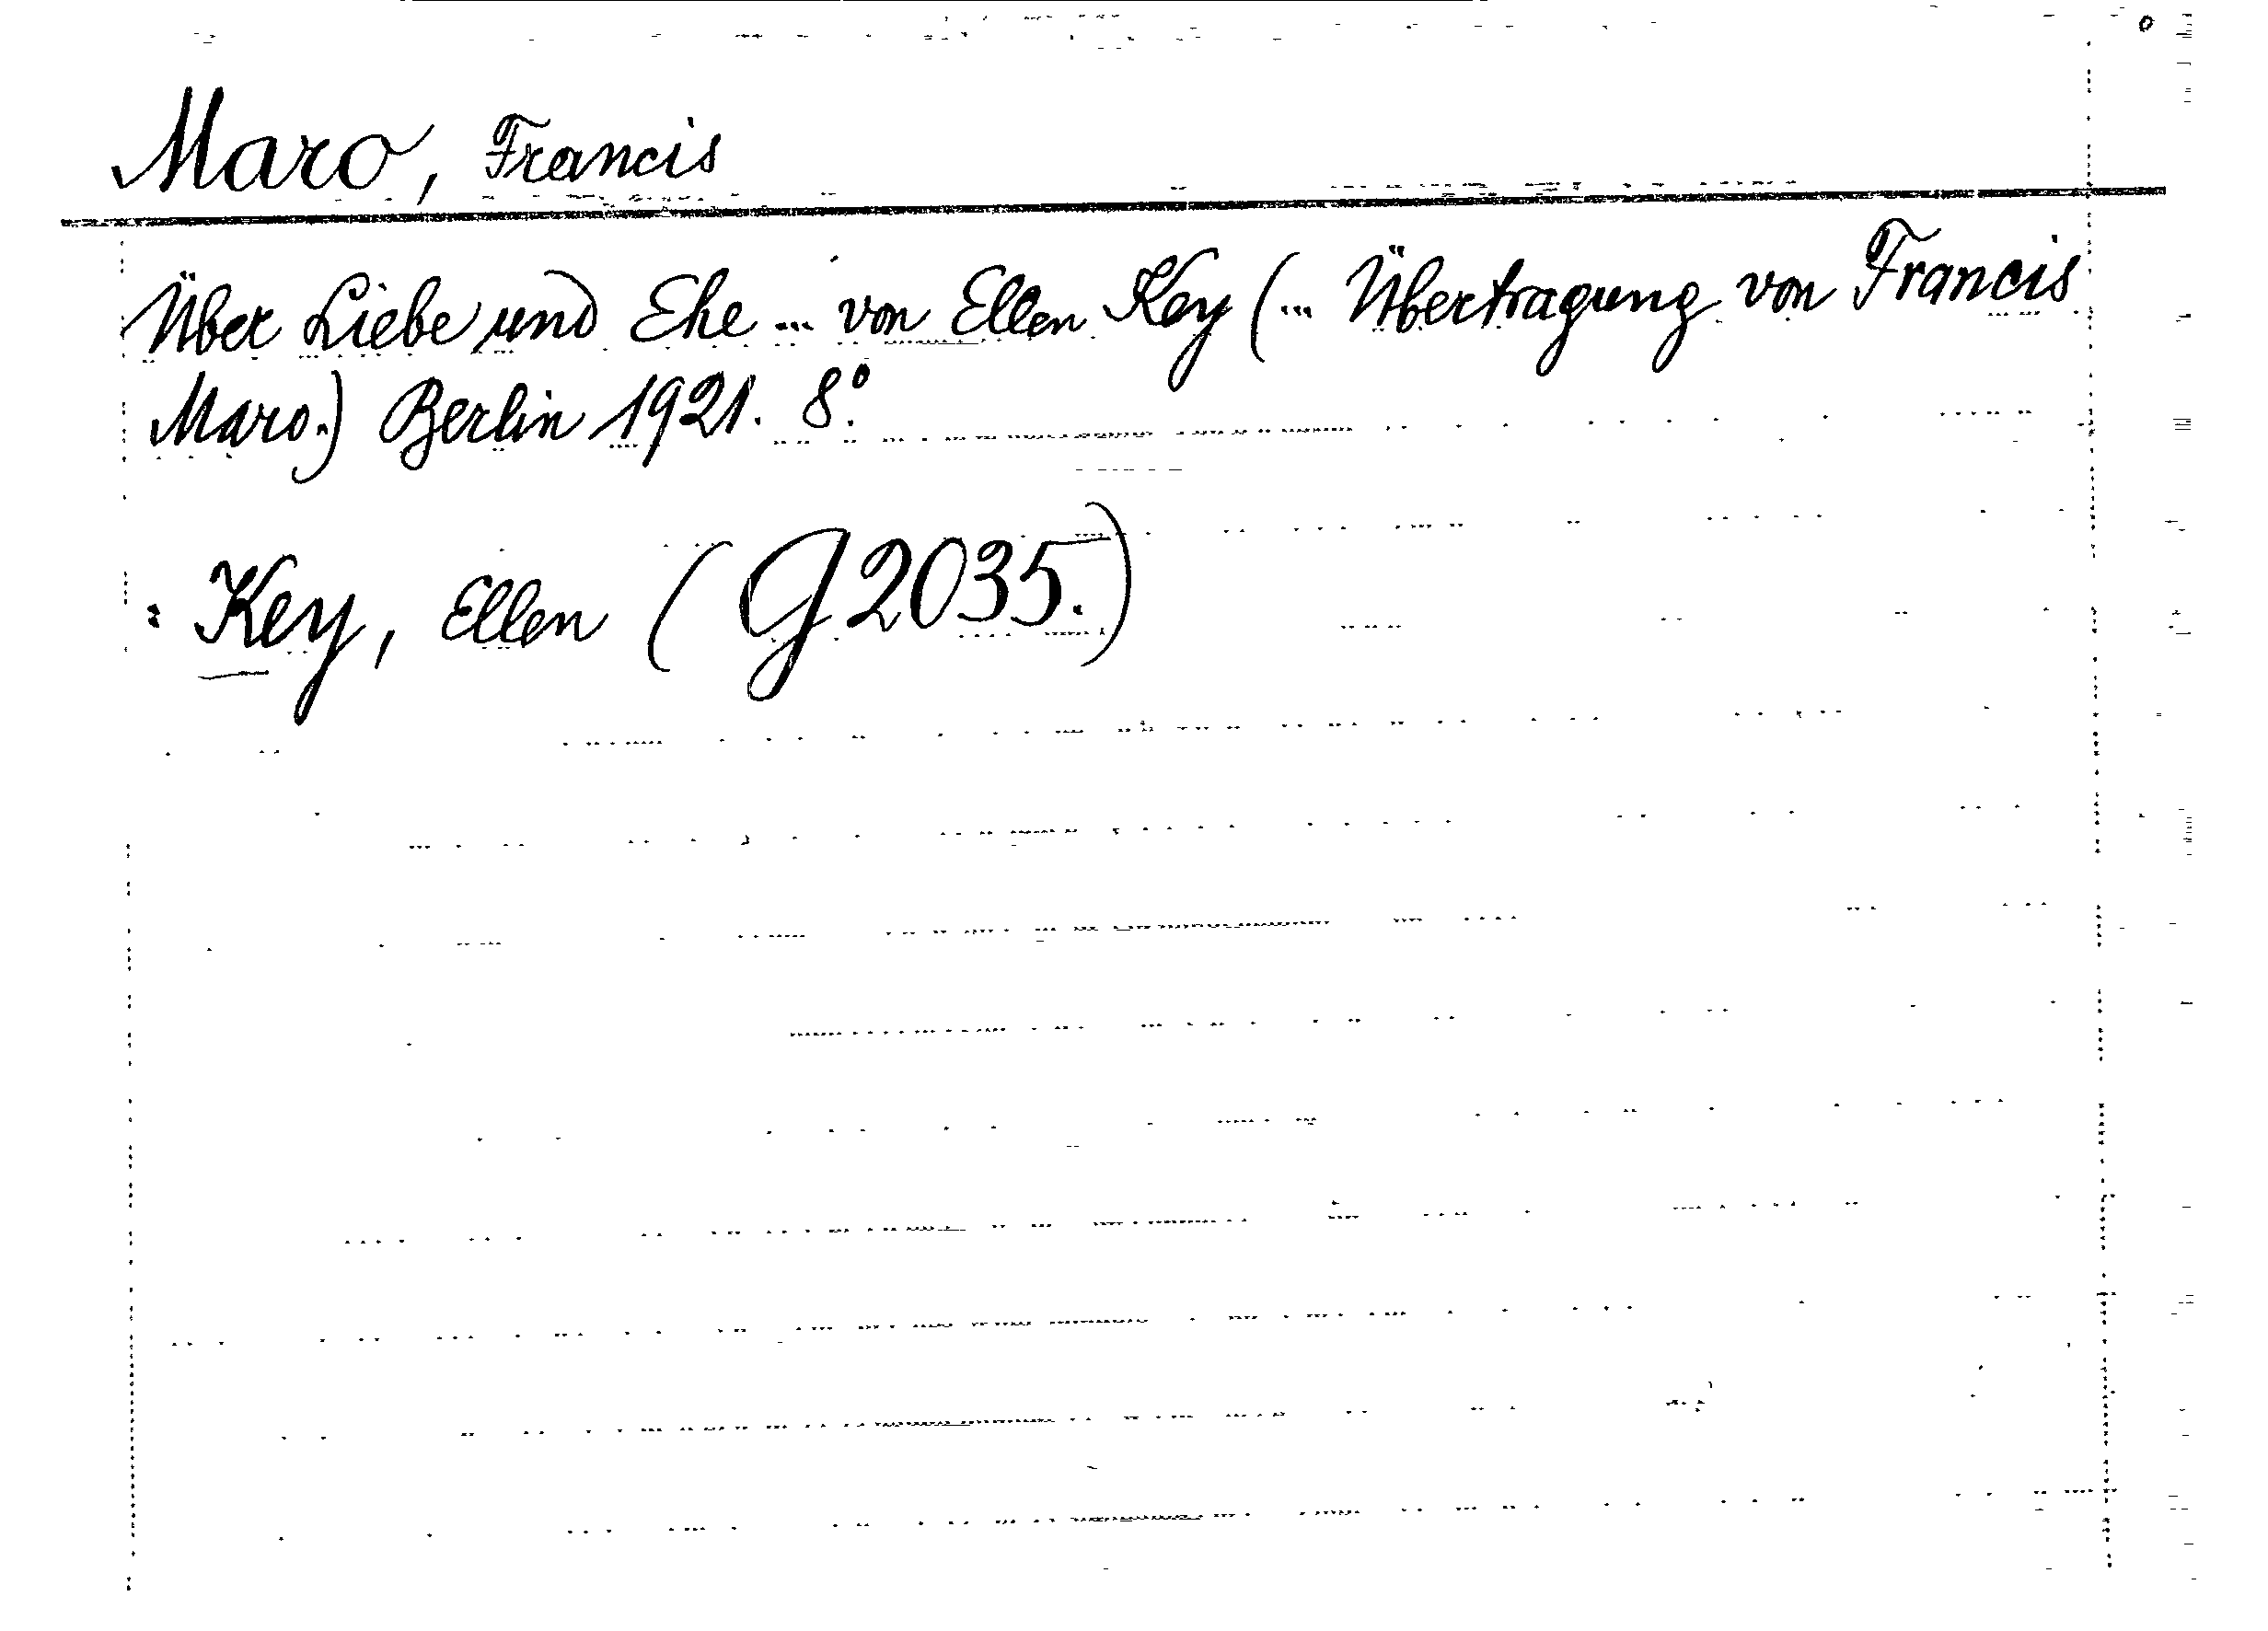 Maro, Francis
Über Liebe und Ehe ... von Ellen Key (... Übertragung von Francis
Maro.) Berlin 1921. 8°.
: Key, Ellen (G 2035.)